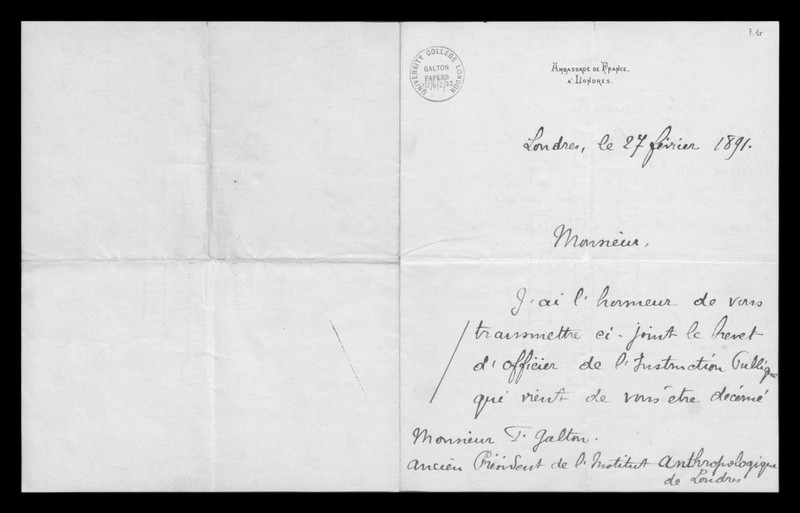 f. 1r
UNIVERSITY COLLEGE LONDON
GALTON
PAPERS
AMBASSADE DE FRANCE.
A LONDRES.
Londres, le 27 février 1891.
Monsieur,
J'ai l'honneur de vous
transmettre ci-joint le brevet
d'officier de l'Instruction Publique
qui vient de vous être décerné
Monsieur F. Galton.
ancien Président de l'Institut Anthropologique
de Londres